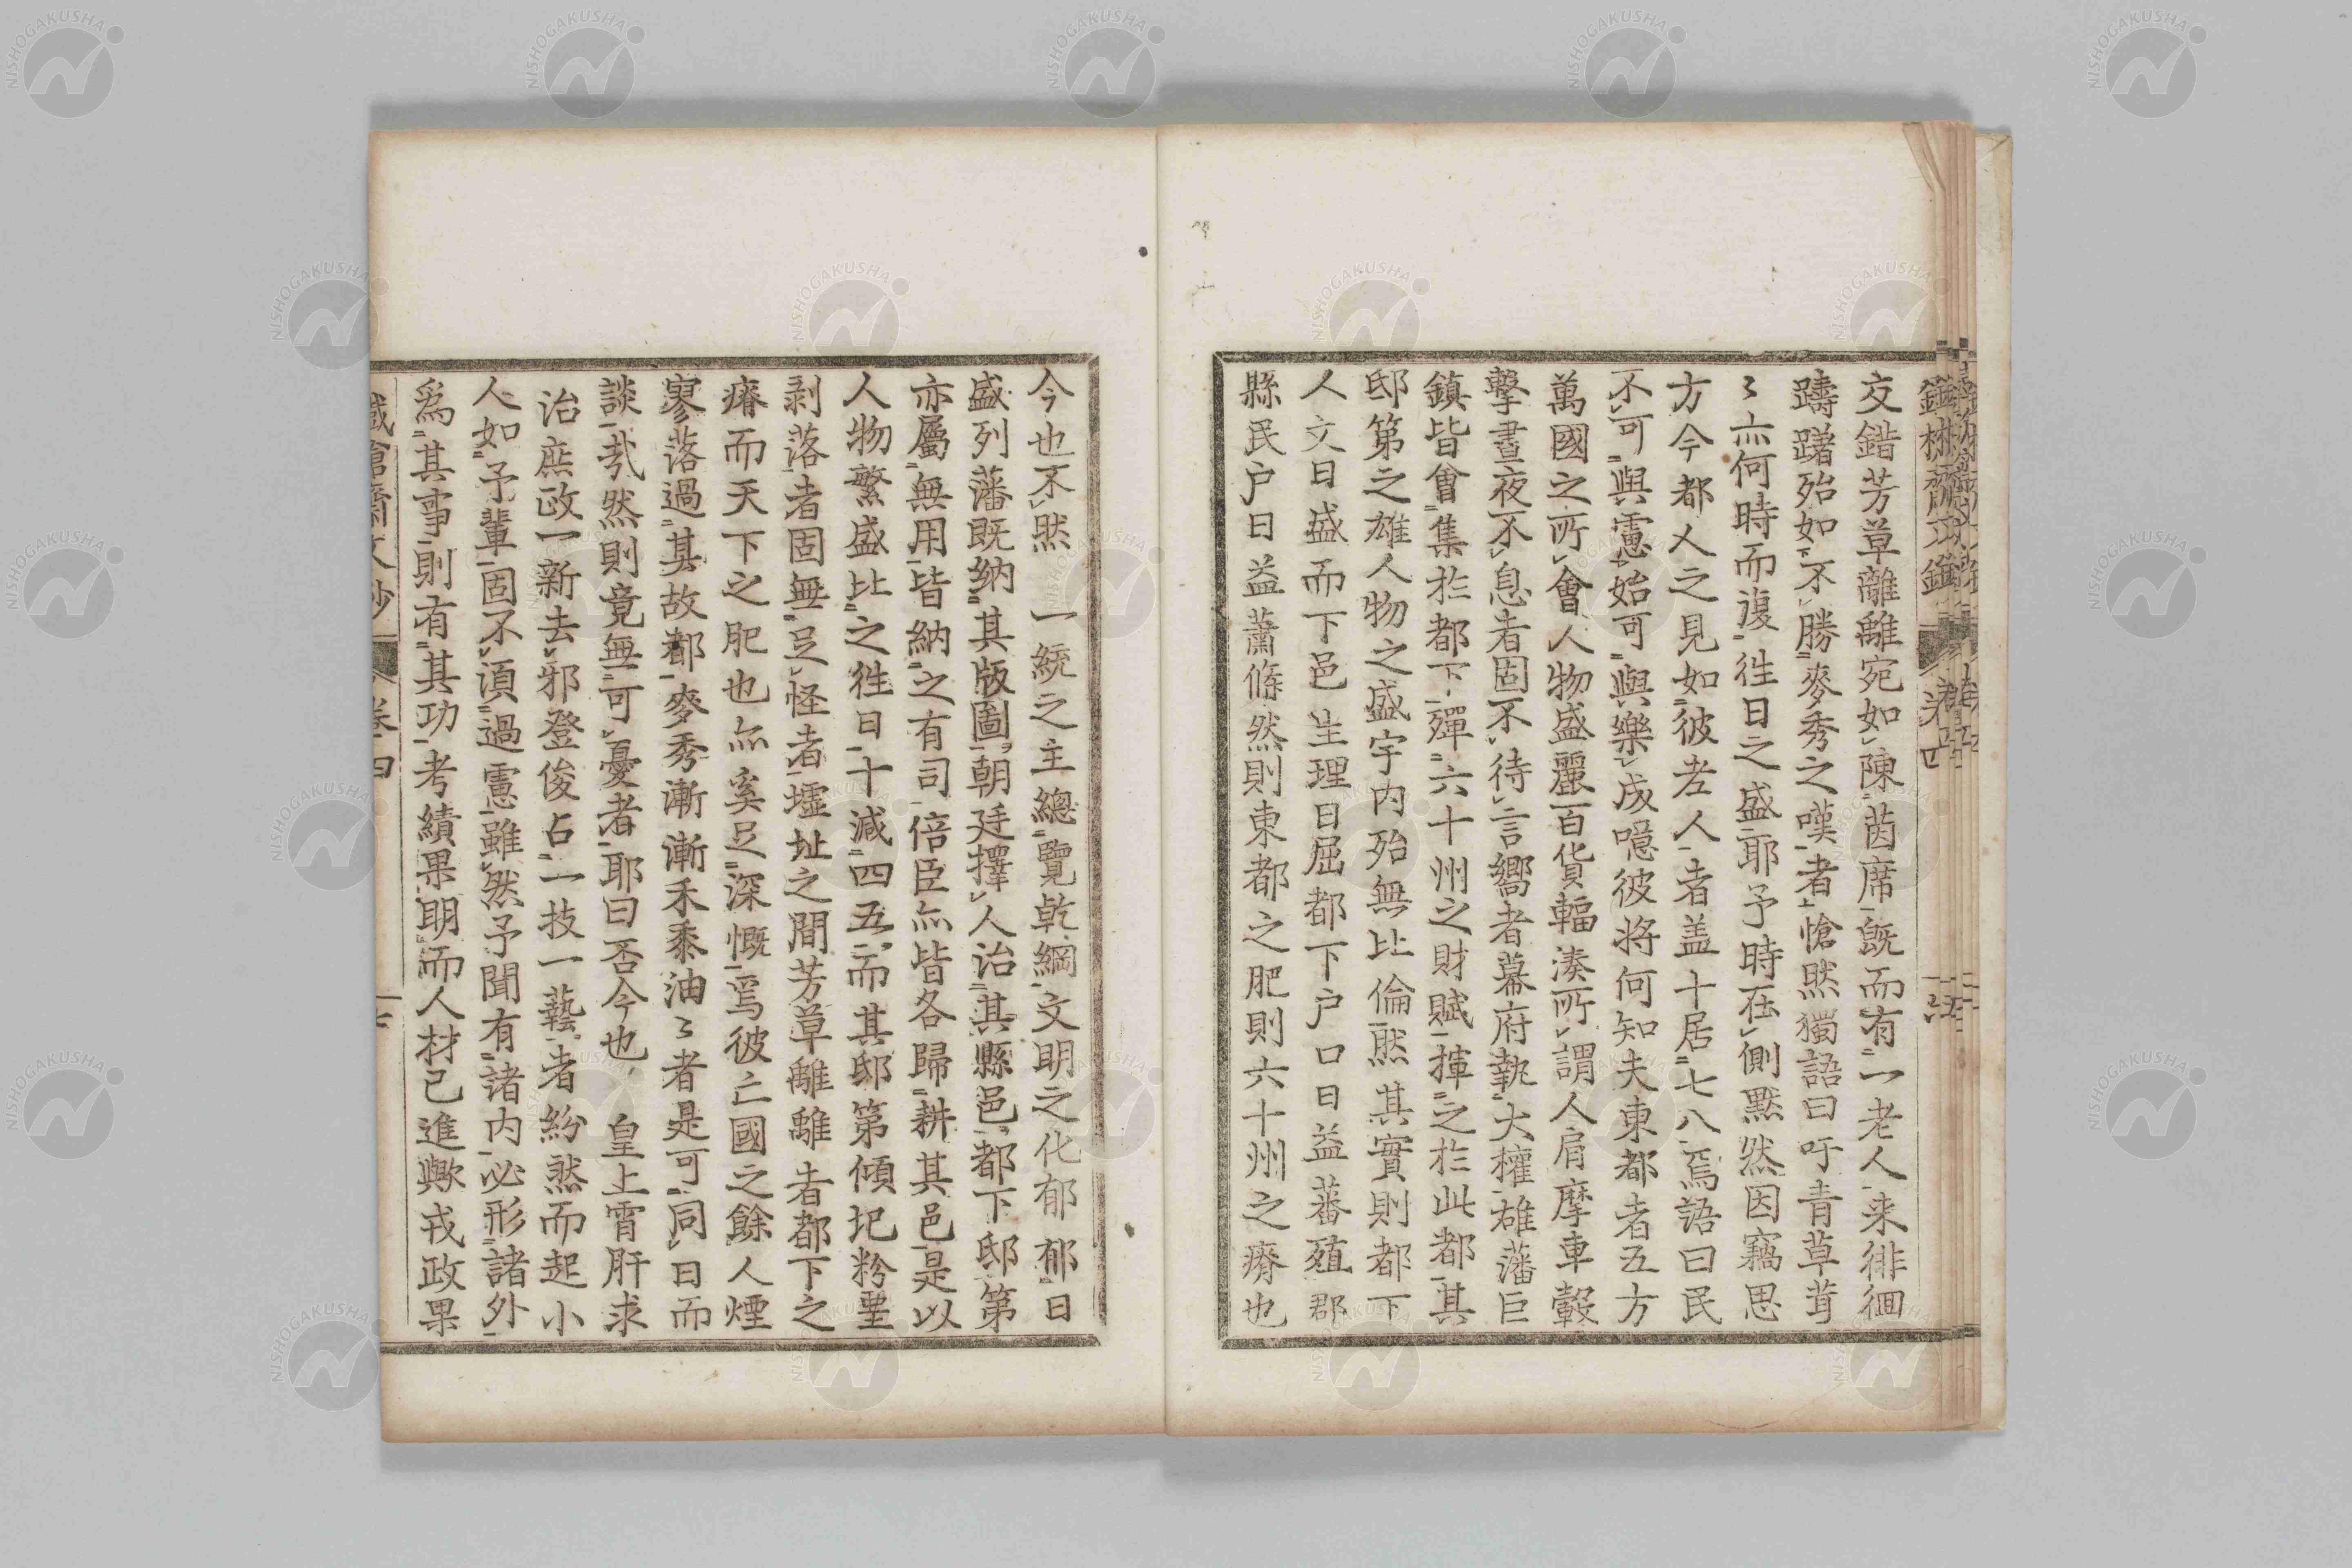 交錯芳草離離宛如陳茵席既而有一老人来徘徊
躊躇殆如不勝麥秀之嘆者愴然獨語曰吁青草茸
〻亦何時而復徃日之盛耶予時在側黙然因竊思
方今都人之見如彼老人者盖十居七八焉語曰民
不可與慮始可與樂成噫彼将何知夫東都者五方
萬國之所會人物盛麗百貨輻湊所謂人肩摩車轂
擊晝夜不息者固不待言嚮者幕府執大權雄藩巨
鎮皆會集於都下殫六十州之財賦揮之於此都其
邸第之雄人物之盛宇内殆無比倫然其實則都下
人文日盛而下邑生理日屈都下户口日益蕃殖郡
縣民户日益蕭條然則東都之肥則六十州之瘠也
今也不然 一統之主總覽乾綱文明之化郁郁日
盛列藩既納其版圖朝廷擇人治其縣邑都下邸第
亦屬無用皆納之有司倍臣亦皆各歸耕其邑是以
人物繁盛比之徃日十減四五而其邸第傾圯粉堊
剥落者固無足怪者墟址之間芳草離離者都下之
瘠而天下之肥也亦奚足深慨焉彼亡國之餘人煙
寥落過其故都麥秀漸漸禾黍油〻者是可同日而
談哉然則竟無可憂者耶曰否今也 皇上宵肝求
治庶政一新去邪登俊占一技一藝者紛然而起小
人如予輩固不須過慮雖然予聞有諸内必形諸外
為其事則有其功考績果明而人材已進歟戎政果
齋文鈔 卷四